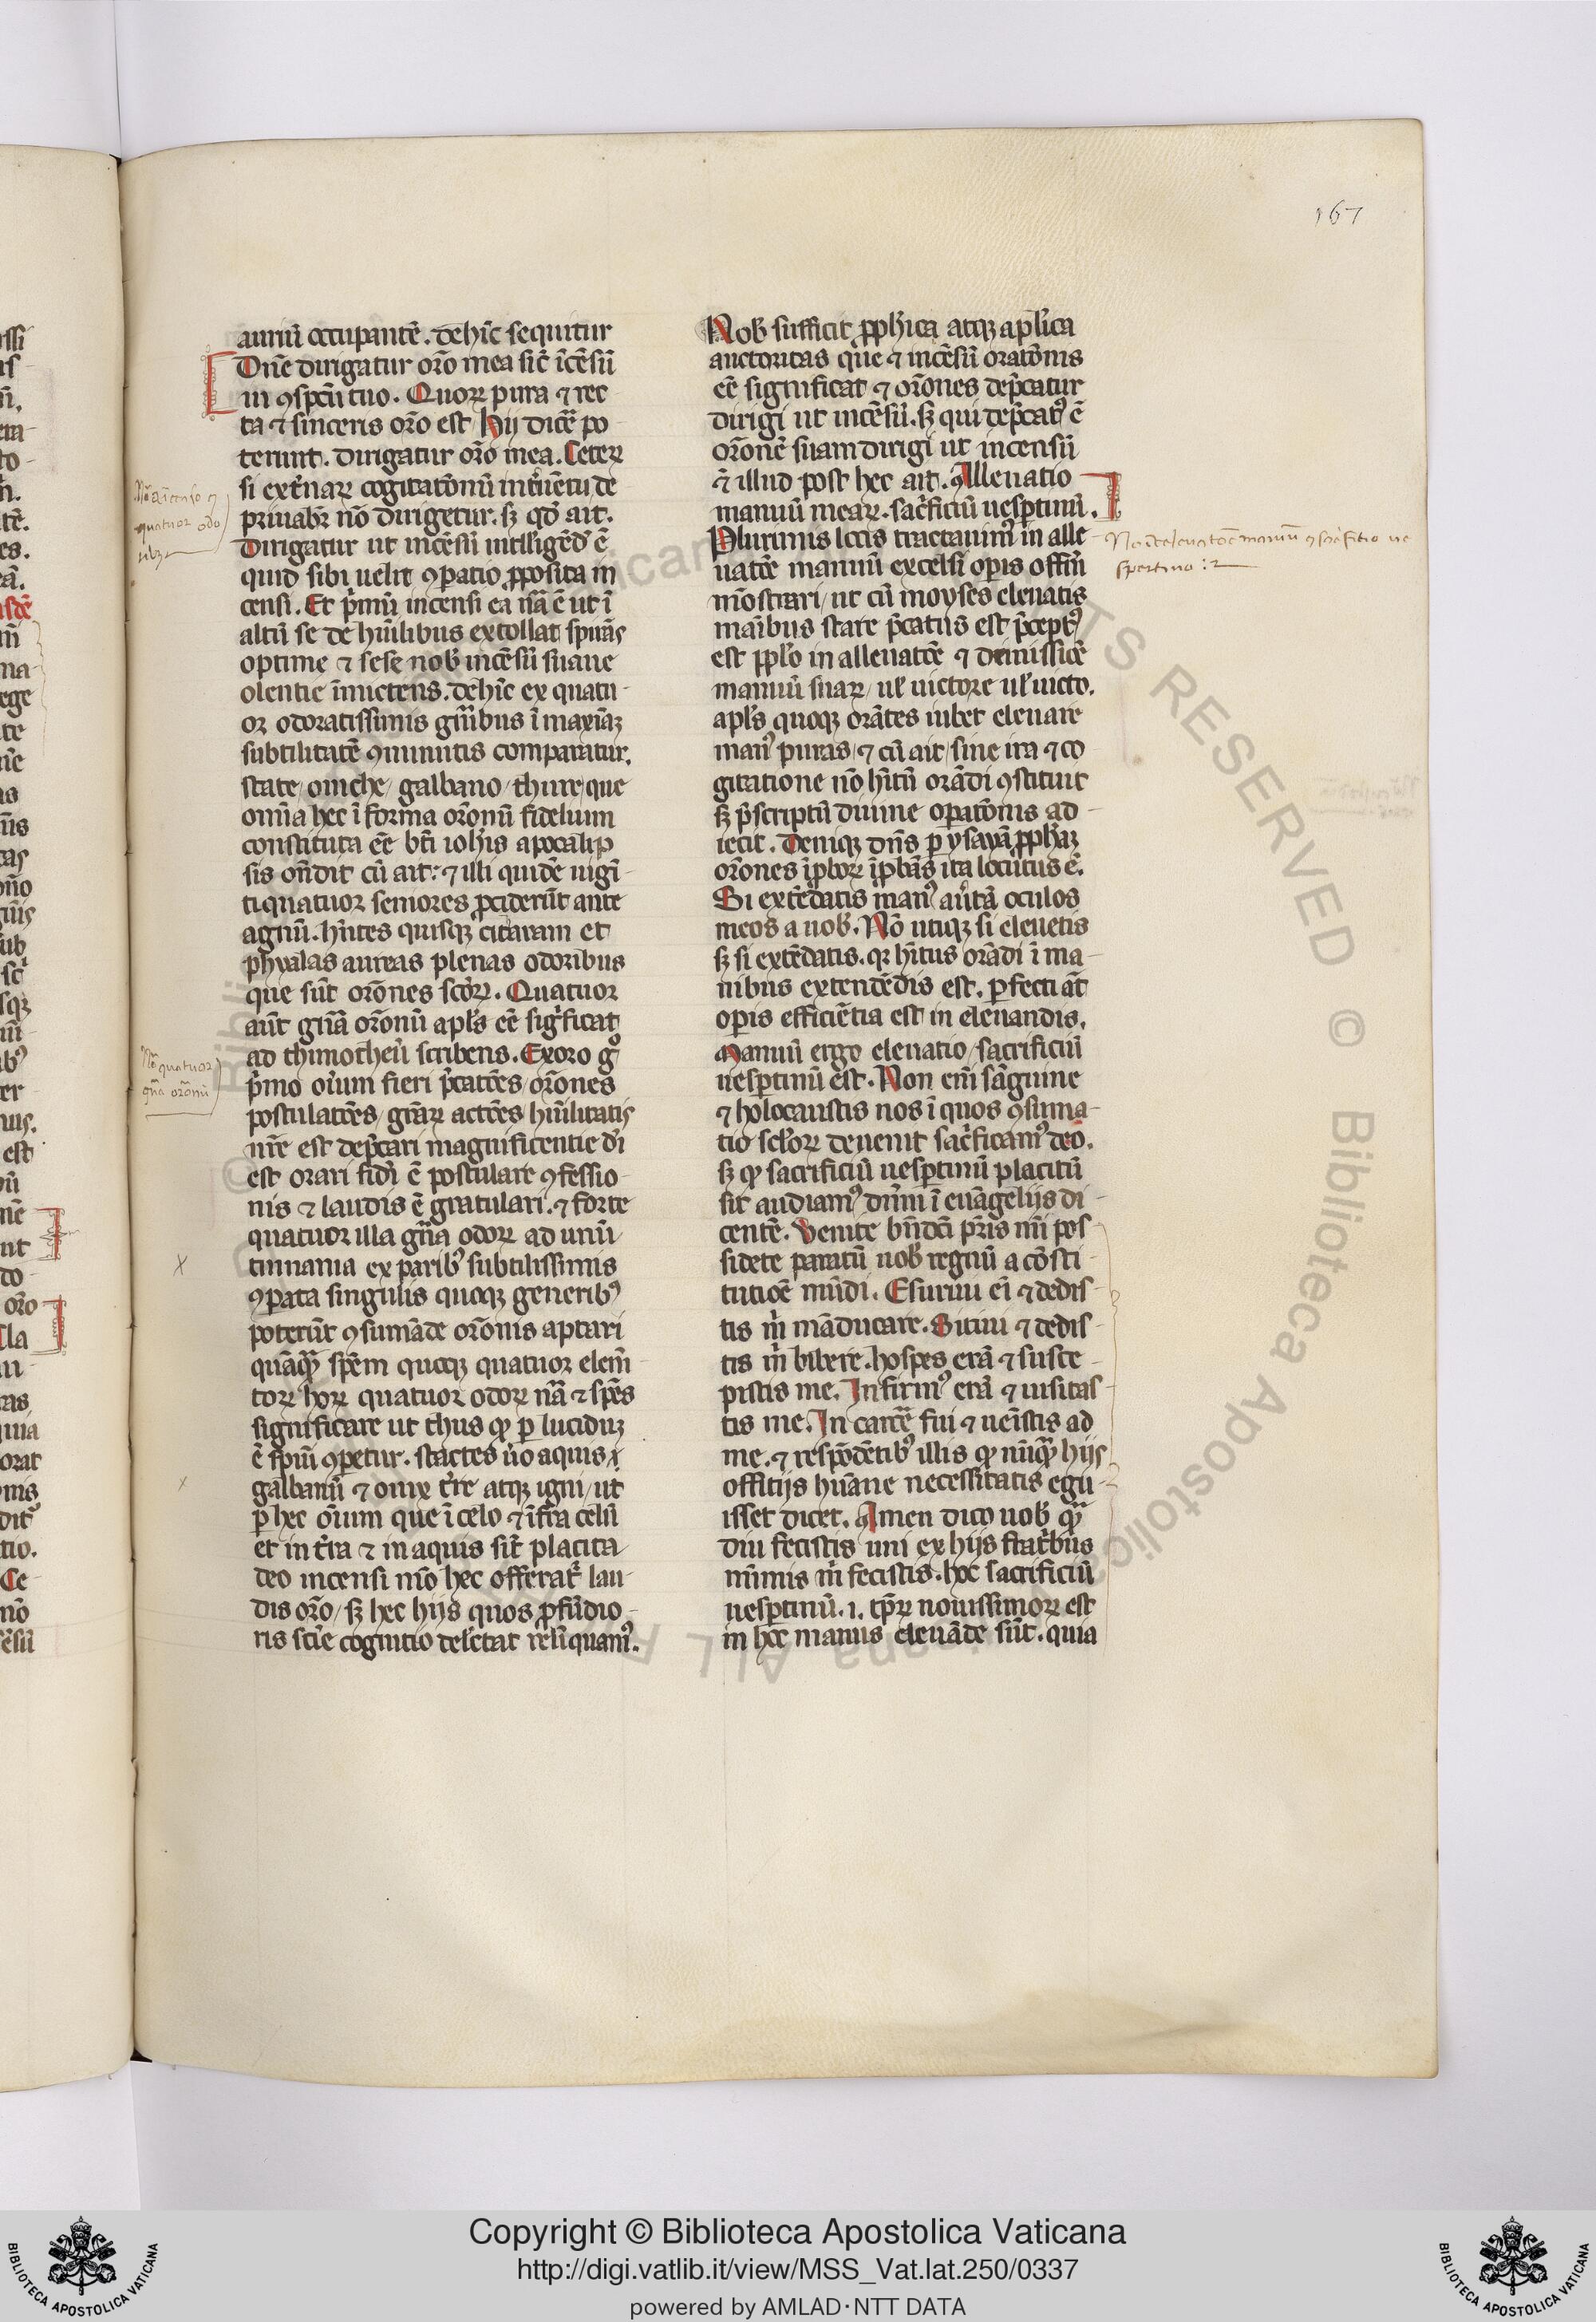 167
auriū occupantē. dehīc sequitur
Dn̄e dirigatur or̄o mea sic̄ īcēsū
in ꝯspcū tuo. Quoꝝ pura ⁊ rec
ta ⁊ sinceris or̄o est. Hij dic̄e po
terunt. dirigatur or̄o mea. Ceteꝝ
si ext̄naꝝ cogitatōnū int̄uētu de
priuabr̄ nō dirigetur. sꝫ qd̄ ait.
Dirigatur ut incēsū intllīgēd̄ ē
quid sibi uelit ꝯꝑatio ꝓposita in
censi. Et p̄mū incensi ea nā ē ut ī
altū se de hūilibus extollat spirās
optime ⁊ sese nob̄ incēsū suaue
olentie īmictens. dehīc ex quatu-
or odoratissimis gn̄ibus ī maxīaꝫ
subtilitatē ꝯminutis comparatur.
state / oniche / galbano / thure / que
omīa hec ī forma or̄onū fidelium
constituta eē bt̄i ioh̄is apocalip
sis on̄dit cū ait: ⁊ illi quidē uigī-
tiquatuor seniores ꝓciderūt ante
agnū. hn̄tes quisqꝫ citaram et
phyalas aureas plenas odoribus
que sūt or̄ones sc̄oꝝ. Quatuor
aūt gn̄a or̄onū apl̄s eē sigīficat
ad thimotheū scribens. Exoro g̊
p̄mo oīum fieri p̄catōes / or̄ones
postulatōes / gr̄aꝝ actōes hūilitatis
nr̄e est dep̄cari magnificentie dī
est orari fidī ē postulare ꝯfessio-
nis ⁊ laudis ē gratulari. ⁊ forte
quatuor illa gn̄a odoꝝ ad unū
timiama ex paribꝰ subtilissimis
ꝯꝑata singulis quoqꝫ generibꝰ
poterūt ꝯsumāde or̄onis aptari
quāqꝫ spēm quoqꝫ quatuor elem̄
toꝝ hoꝝ quatuor odoꝝ nā ⁊ spēs
significare ut thus qꝫ ꝑ luciduꝫ
ē spiū ꝯꝑetur. stactes ūo aquis /
galbanū ⁊ onix t̄re atqꝫ igni / ut
ꝑ hec ōium que ī celo ⁊ īfra celū
et in t̄ra ⁊ in aquis sūt placita
deo incensi mō hec offerat̄ lau-
dis or̄o / sꝫ hec hijs quos ꝓfūdio-
ris scīe cognitio delc̄tat relīquamꝰ.
Nob̄ sufficit ꝓph̄ica atqꝫ apl̄ica
auctoritas que ⁊ incēsū oratōnis
eē significat ⁊ or̄ones dep̄catur
dirigi ut incēsū. sꝫ qui dep̄catꝰ ē
or̄onē suam dirigi ut incensū
⁊ illud post hec ait. Alleuatio
manuū meaꝝ. sac̄ficiū uesꝑtinū.
Plurimis locis tractauimꝰ in alle-
uatōe manuū excelsi oꝑis offm̄
mōstrari / ut cū moyses eleuatis
maībus stare p̄catus est p̄ceptꝰ
est ppl̄o in alleuatōe ⁊ demissiōe
manuū suaꝝ / ul̄ uictore ul̄ uicto.
apl̄s quoqꝫ orātes iubet eleuare
manꝰ puras / ⁊ cū ait / sine ira ⁊ co-
gitatione nō hītū orādi ꝯstituit
sꝫ p̄scriptū diuine oꝑatōnis ad-
iecit. Deniqꝫ dn̄s ꝑ ysayā ꝓph̄aꝫ
or̄ones īpboꝝ īpbās ita locūtus ē.
Si extēdatis manꝰ aūtā oculos
meos a uob̄. Nō utiqꝫ si eleuetis
sꝫ si extēdatis. qꝛ hītus orādi ī ma-
nibus extendēdis est. ꝑfecti āt
oꝑis efficiētia est in eleuandis.
Manuū ergo eleuatio / sacrificiū
uesꝑtinū est. Non enī sāguine
⁊ holocaustis nos ī quos ꝯsūma-
tio scl̄oꝝ deuenit sac̄ficamꝰ deo.
sꝫ qꝫ sacrificiū uesꝑtinū placitū
sit audiamꝰ dn̄m ī euāgelijs di-
centē. Venite bn̄dc̄i pr̄is mī pos-
sidete paratū uob̄ regnū a cōsti-
tutiōe mūdi. Esuriui eī ⁊ dedis-
tis m̄ māducare. Sitiui ⁊ dedis-
tis m̄ bibere. hospes erā ⁊ susce-
pistis me. Infirmꝰ erā ⁊ uisitas-
tis me. In carcē fui ⁊ uenistis ad
me. ⁊ respōdētibꝰ illis qꝫ nūqꝫ hijs
offitijs hūane necessitatis egu-
isset dicet. Amen dico uob̄ qꝫ
diu fecistis uni ex hijs frat̄bus
mīmis m̄ fecistis. hoc sacrificiū
uesꝑtinū. i. tꝑꝝ nouissimoꝝ est
in hoc manus eleuāde sūt. quia
Nō quatuor
gn̄a or̄onū
Copyright © Biblioteca Apostolica Vaticana
http://digi.vatlib.it/view/MSS_Vat.lat.250/0337
powered by AMLAD·NTT DATA
BIBLIOTECA APOSTOLICA VATICANA
BIBLIOTECA APOSTOLICA VATICANA